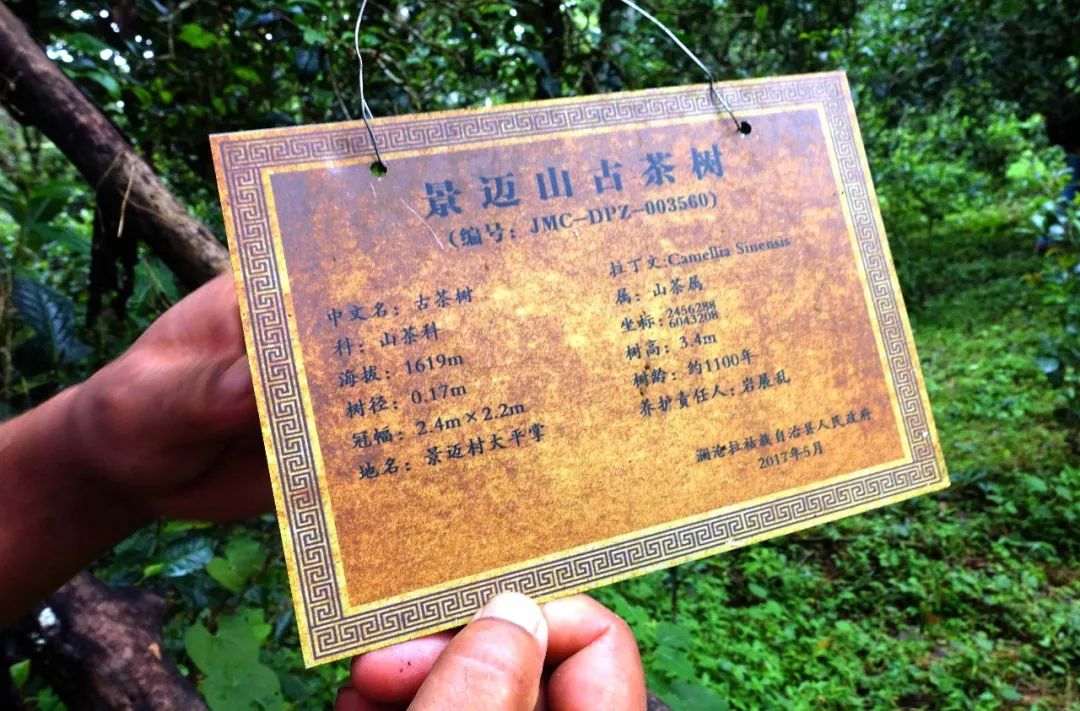 景迈山古茶树
(编号：JMC-DPZ-003560)
中文名：古茶树
拉丁文:Camellia Sinensis
科：山茶科
属：山茶属
海拔：1619m
坐标：2456288
6043208
树径：0.17m
树高：3.4m
冠幅：2.4m×2.2m
树龄：约1100年
地名：景迈村大平掌
养护责任人：岩展乱
澜沧拉祜族自治县人民政府
2017年5月